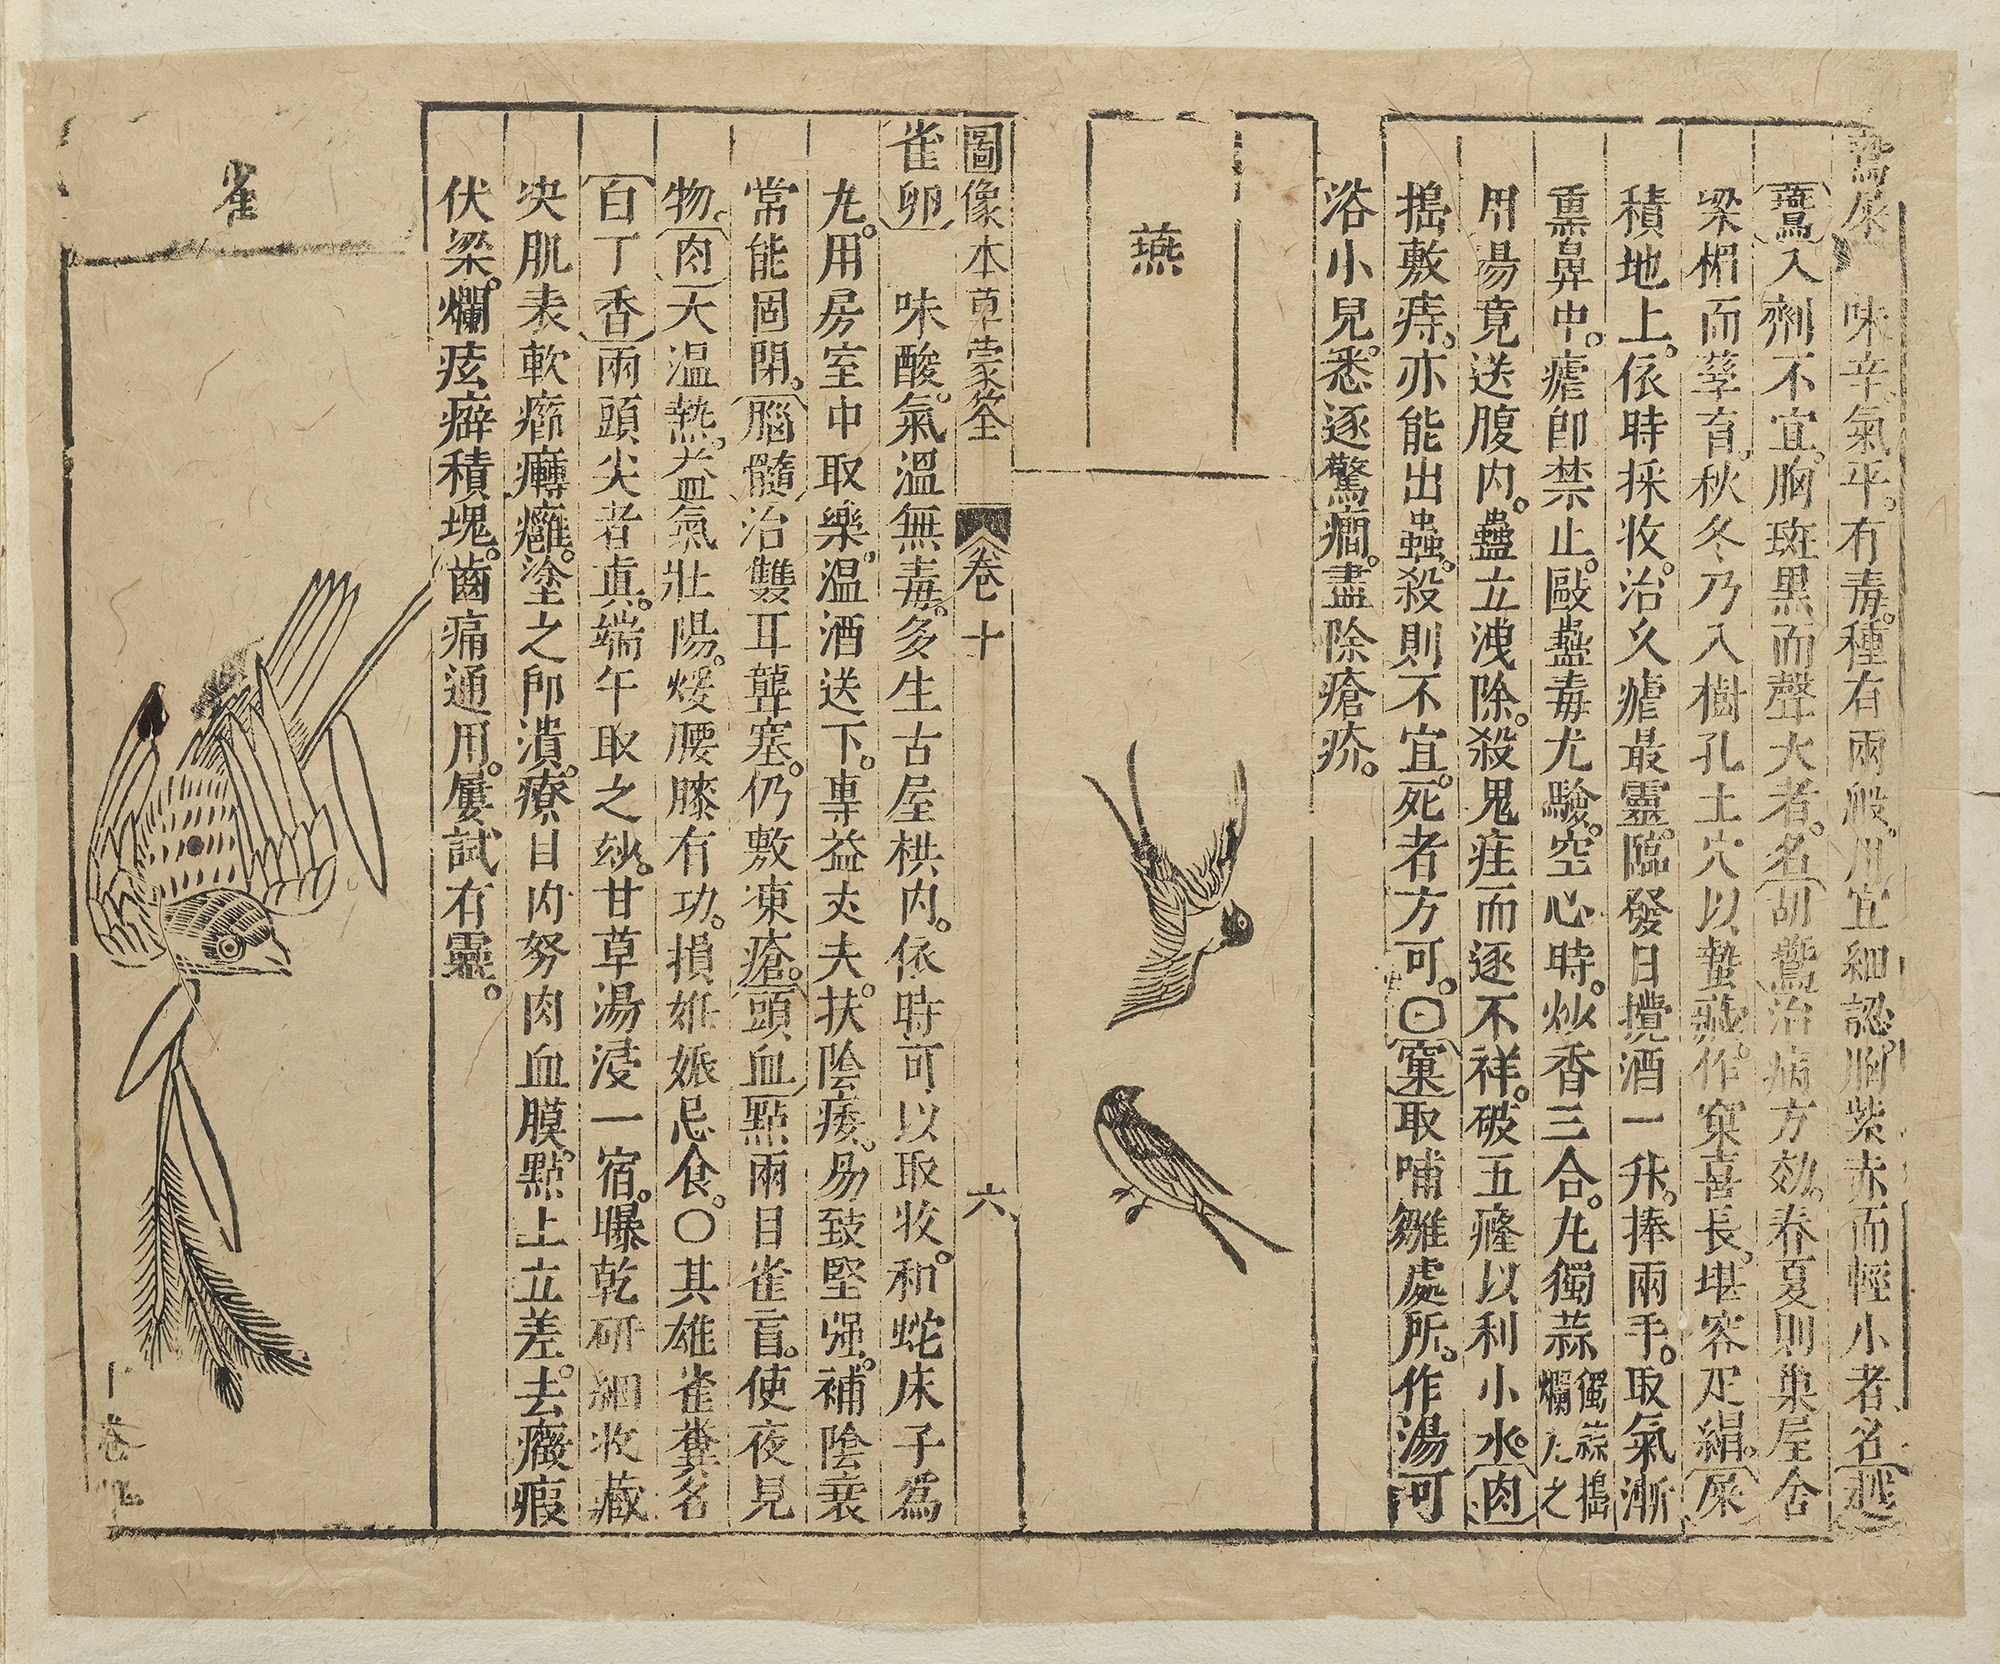 鷰屎 味辛氣平。有毒。種有兩般。用宜細認。胸紫赤而輕小者名越
鷰入劑不宜。胸斑黑而聲大者。名胡鷰治病方効。春夏則巢屋舍
梁楣而孳育。秋冬乃入樹孔土穴以蟄藏。作窠喜長。堪容疋絹。屎
積地上。依時採收。治久瘧最靈。臨發日攪酒一升。捧兩手。取氣漸
熏鼻中。瘧卽禁止。毆蠱毒尤驗。空心時。炒香三合。丸獨蒜獨蒜搗爛丸之
用湯竟送腹內。蠱立洩除。殺鬼疰而逐不祥。破五癃以利小水。肉
搗敷痔。亦能出蟲。殺則不宜。死者方可。○窠取哺雛處所。作湯可
浴小兒。悉逐驚癇。盡除瘡疥。
燕
圖像本草蒙筌 卷十 六
雀卵 味酸。氣溫無毒。多生古屋栱內。依時可以取收。和蛇床子為
丸。用房室中取樂。溫酒送下。專益丈夫。扶陰痿。易致堅强。補陰衰
常能固閉。腦髓治雙耳聾塞。仍敷凍瘡。頭血點兩目雀盲。使夜見
物。肉大溫熱。益氣壯陽。煖腰膝有功。損妊娠忌食。○其雄雀糞名
白丁香兩頭尖者眞。端午取之玅。甘草湯浸一宿。曝乾研細收藏
決肌表軟癤癰癰。塗之卽潰。療目內努肉血膜。點上立差。去癥瘕
伏梁。爛痃癖積塊。齒痛通用。屢試有靈。
雀
卷